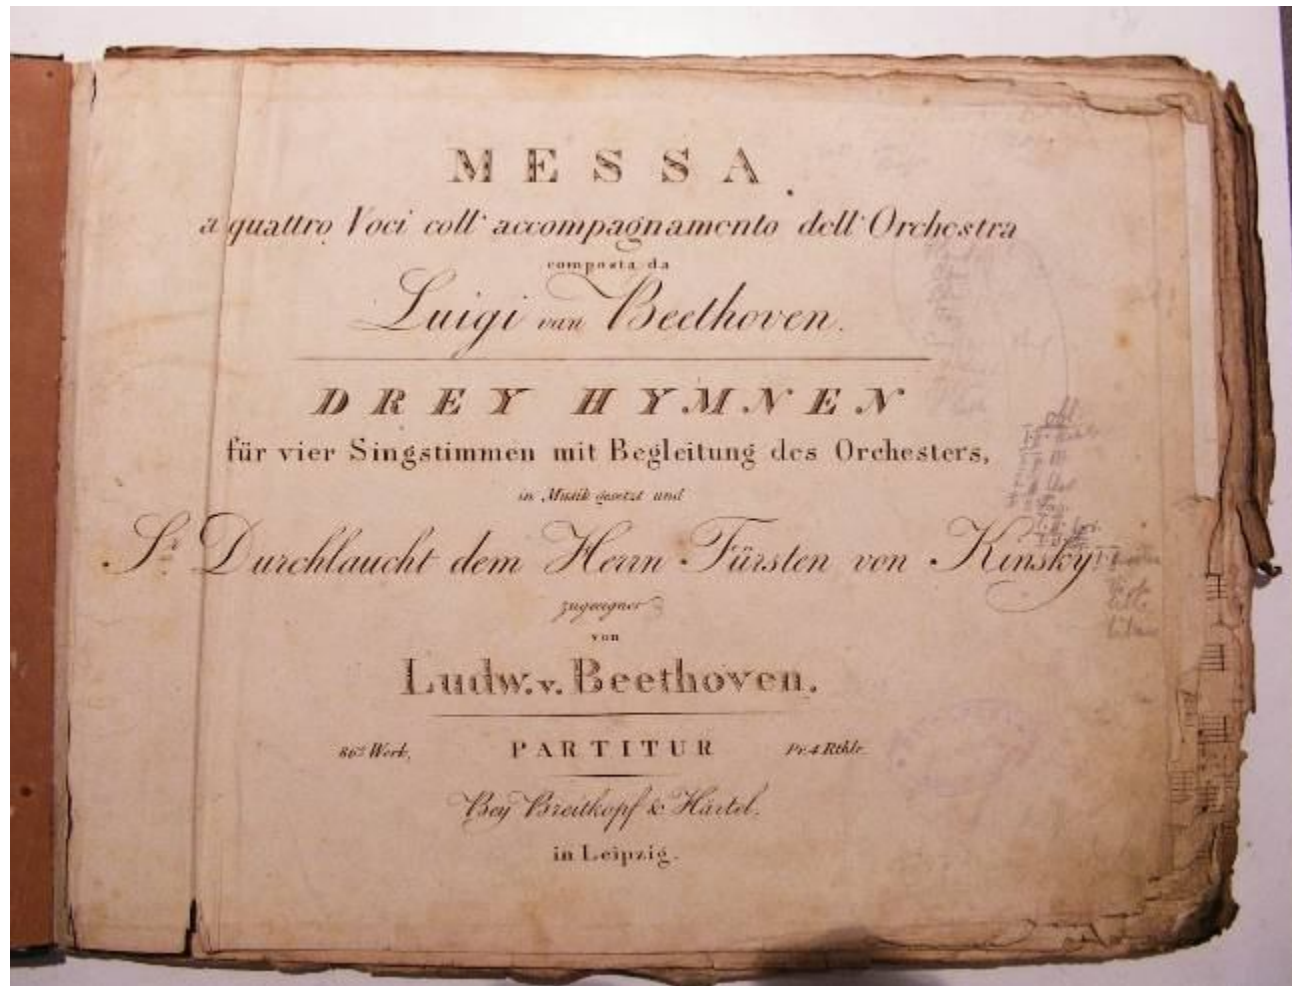 MESSA.
a quattro Voci coll' accompagnamento dell' Orchestra
composta da
Luigi van Beethoven.
DREY HYMNEN
für vier Singstimmen mit Begleitung des Orchesters,
in Musik gesetzt und
Sr. Durchlaucht dem Herrn Fürsten von Kinsky
zugeeignet
von
Ludw. v. Beethoven.
86s Werk, PARTITUR Pr. 4 Rthlr.
Bey Breitkopf & Härtel.
in Leipzig.